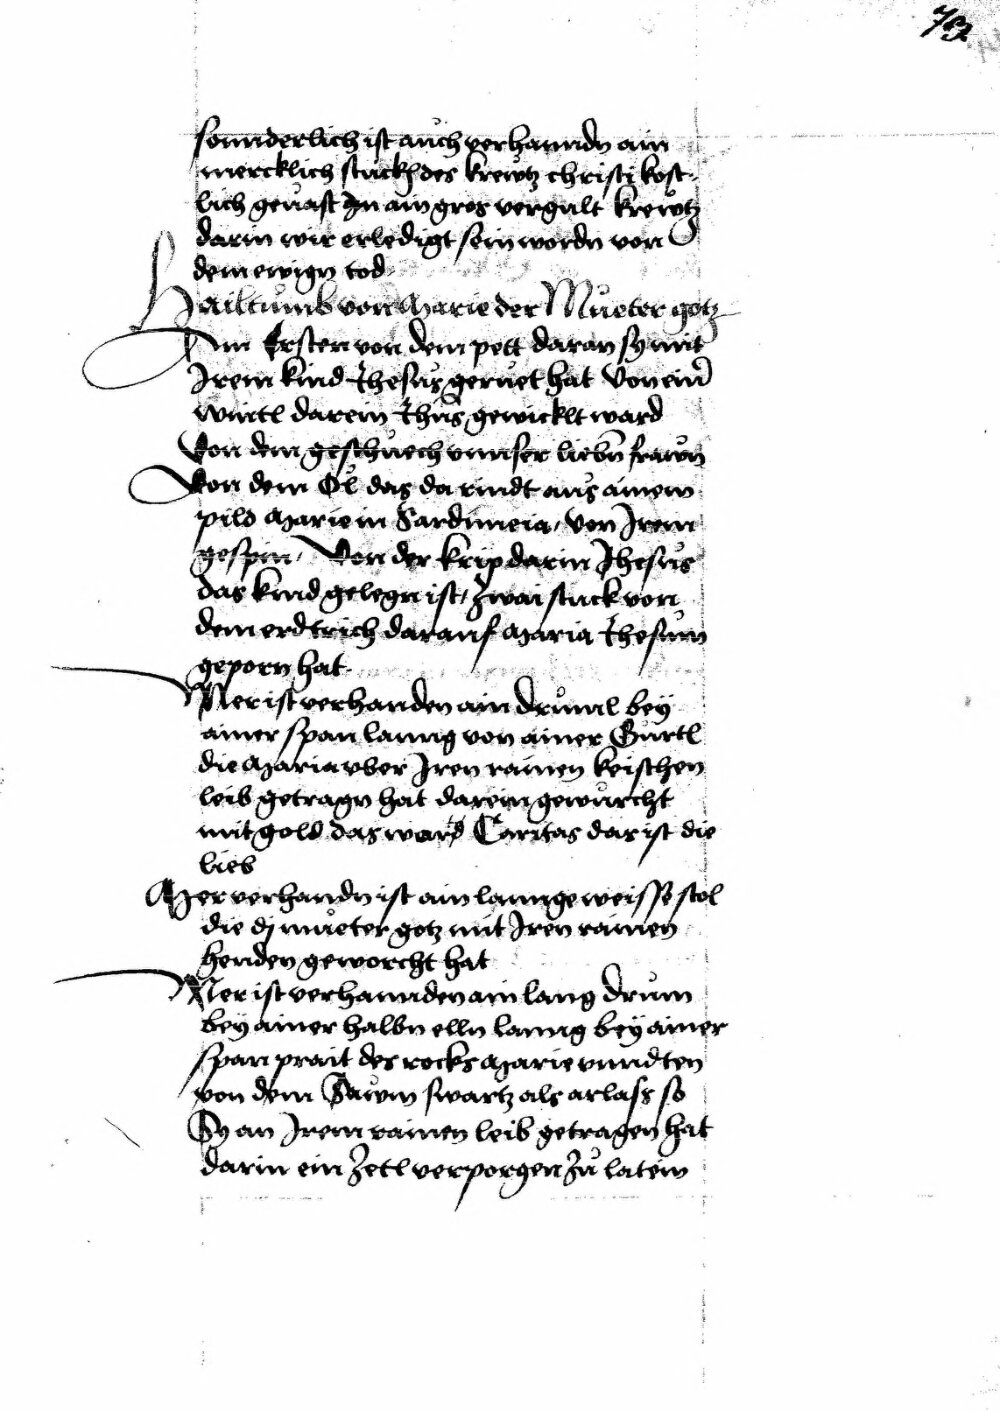 79
sonnderlich ist auch verhanndn ain
mercklich stuckh des krewtz christi kost-
lich geuast In ain gros vergult krewtz
darin wir erledigt sein wordn von
dem ewign tod
Hailtumb von Marie der Mueter gotz
Am Ersten von dem pett daran sy mit
Irem kind Jhesus geruet hat Von einer
wintl darein Jhus gewicklt ward
Von dem geschuech vnnser liebn frawn
Von dem Öl das da rindt aus ainem
pild Marie in Sardinieia, Von Irem
gespin, Von der krip darin Jhesus
das kind gelegn ist, Zwai stuck von
dem erdtrich darauf Maria Jhesum
geporn hat
Mer ist verhanden ain drüml bey
ainer span lanng von ainer Gürtl
die Maria vber Iren rainen keischen
leib getragn hat darein gewürcht
mit gold das ward Caritas das ist die
lieb
Mer verhandn ist ain lannge weisse stol
die dj mueter gotz mit Iren rainen
henden geworcht hat
Mer ist verhannden ain lang drum
bey ainer halbn elln lanng bey ainer
span prait des rocks Marie vnndten
von dem Sawm swartz als arlass so
Sy an Irem rainen leib getragen hat
darin ein Zetl verporgen Zu latein